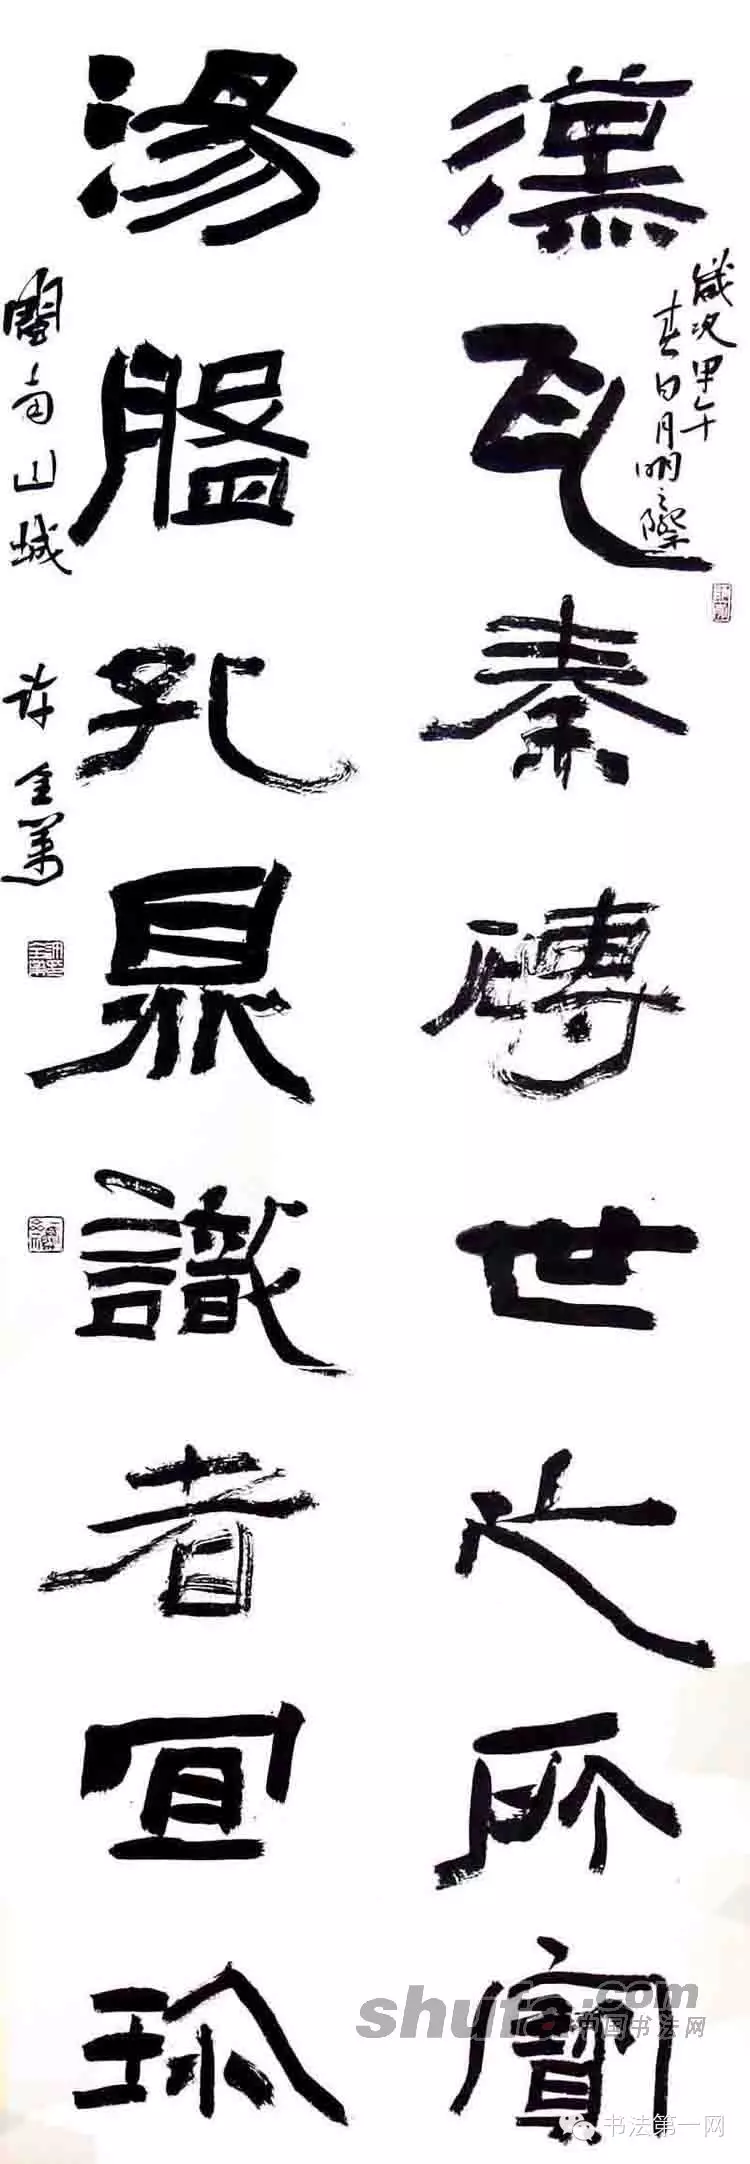 漢瓦秦磚世之所寶
湯盤孔鼎識者宜珍
歲次甲午
春日月明之際
閩南山城
許全華
shufa.com
中国书法网
书法第一网